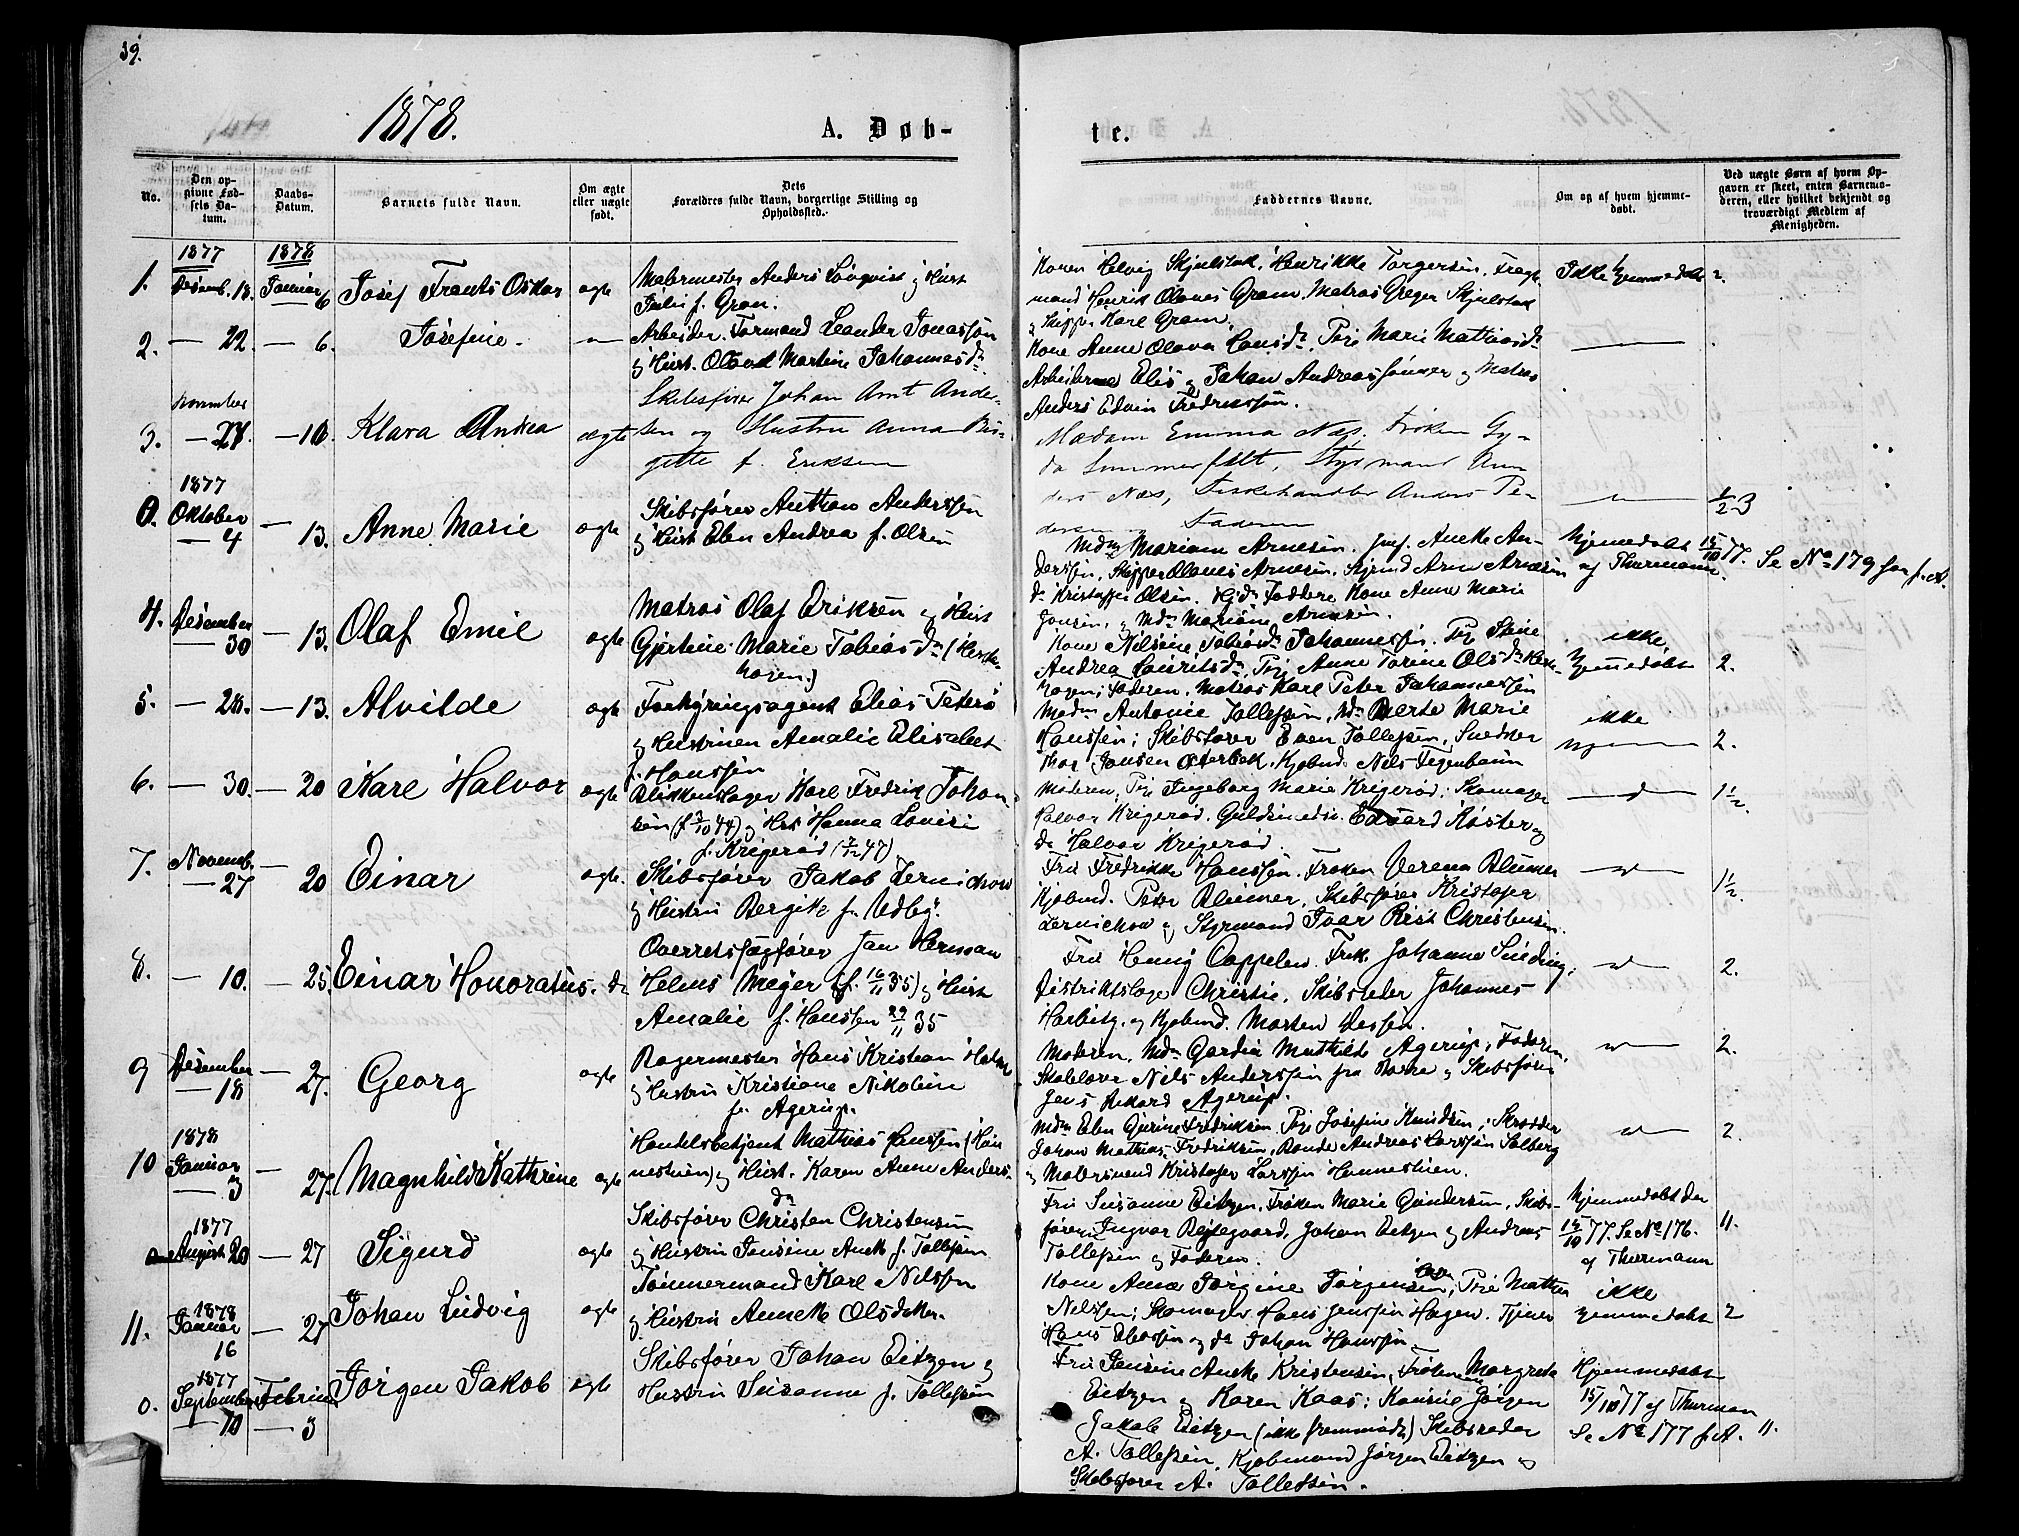 39.
1878.
A. Døb-
te.
No.
Den op-
givne Fød-
sels Da-
tum.
Daabs-
Datum.
Barnets fulde Navn.
Om ægte
eller uægte
født.
Dets
Forældres fulde Navn, borgerlige Stilling og
Opholdssted.
Faddernes Navne.
Om og af hvem hjemme-
døbt.
Ved uægte Børn af hvem Op-
gaven er skeet, enten Barnemo-
deren, eller hvilket bekjendt og
troværdigt Medlem af
Menigheden.
1877
1878
1. Desemb. 18. Januar 6 Josef Frants Oskar ægte
Malermester Anders Lövqvist og Hust
f. Gran.
Karen Helvig Skjulstad, Henrikke Torgersen,
mand Henrik Olaves Gram, Matros Greger Skjulstad
og Skipper Karl Gram.
Ikke hjemmedøbt 2.
2. — 22. — 6. Josefine. —
Arbeider Formand Leander Jonassøn
og Hust. Martine Johannesdr.
Kone Anne Olava Larsdr, Pige Marie Mathiasdr
Arbeiderne Elis og Johan Andreassønner og Matros
Anders Edvin Fredrikssøn.
3. november — 27. — 10. Klara Andrea ægte
Skibsfører Johan Amt Ander-
sen og Hustru Anna Bir-
gitte f. Eriksen
Madam Emma Næs, Frøken Gy-
da Sommerfeldt, Styrmand An-
ders Næs, Fiskehandler Anders Pe-
dersen og Faderen
0. 1877 Oktober — 4 — 13. Anne Marie ægte
Skibsfører Anthon Anderssen
og Hust Elen Andrea f. Olsen
Mdm Mariane Arnesen. Anette An-
derssen, Skipper Olaves Arnesen, Arne Arnesen
do Kristoffer Olsen. Hjdøb Faddere Kone Anne Marie
Jonsen, og Mdm Mariane Arnesen.
Hjemmedøbt 15/10 77. Se No 179 for f. A.
af Thurmann.
4. Desember 30 — 13. Olaf Emil ægte
Matros Olaf Eriksen og Hust
Gjertine Marie Tobiasdr
Kone Nilsine Tobiasdr Johannessen. Pige Stine
Andrea Lauritsdr, Pige Anne Torine Olsdr
Faderen, Matros Karl Peter Johannessen
ikke
hjemmedøbt 2.
5. — 28. — 13. Alvilde ægte
Forhyringsagent Elias Peters
og Hustruen Amalie Elisabet
f. Hanssen
Madm Antonie Tollefsen, Mdm Berte Marie
Hanssen; Skibsfører Even Tollefsen, Snedker
Jonsen Østerbek, Kjøbmd Nils Tegenbaum
ikke
hjem— 2.
6. — 30. — 20 Karl Halvor ægte
Blikkenslager Karl Fredrik Johan-
sen (f. 3/10 44) og Hus Hanna Lovise
f. Krigerød (7/12 47)
Moderen, Pige Ingeborg Marie Krigerød; Skomager
Halvor Krigerød. Guldsmedsv. Edvard Køster og
do Halvor Krigerød.
1½.
7. Novemb. — 27 — 20 Einar ægte.
Skibsfører Jakob Zernichow
og Hustru Bergitte f. Udby.
Fru Fredrikke Hanssen. Frøken Verena Blumer
Kjøbmd. Peter Blumer, Skibsfører Kristofer
Zernichow og Styrmand Ivar Rist Christensen.
1½.
8. — 10. — 25. Einar Honoratus. do
Overretssagfører Jan Herman
Helms Meyer (f. 16/11 35) og Hust
Amalie f. Hanssen 29/11 35
Fru Henny Cappelen. Frk. Johanne
Distriktslæge Christie, Skibsreder Johannes
Harbitz, og Kjøbmd. Morten Dessen.
2.
9 Desember — 18 — 27. Georg ægte
Bagermester Hans Kristian Holm
og Hustru Kristiane Nikoline
f. Agerup.
Moderen, Mdm Mathilde Agerup, Faderen,
Skolelærer Nils Anderssen fra og Skibsfører
Jens Rikard Agerup.
2.
10 1878 Januar — 3 — 27. Magnhild Kathrine ægte
Handelsbetjent Mathias Hanssen (Hau-
nestuen) og Hust. Karen Anne Anders-
dr
Mdm Elen Gurine Fredriksen. Pige Josefine Knudsen, Skrædder
Johan Mathias Fredriksen, Andreas Larssen Solberg
og Malersvend Kristofer Larssen
2.
0 1877 August 20 — 27 Sigurd ægte
Skibsfører Christen Christensen
og Hustru Jensine Anett f. Tollefsen
Fru Susanne Eitzen, Frøken Marie Gundersen, Skibs-
fører Ingvar Bøjsegaard, Johan Eitzen og Andreas
Tollefsen og Faderen.
hjemmedøbt den
15/10 77. Se No 176.
af Thurmann
11.
11. 1878 Januar 16 — 27 Johan Ludvig ægte
Tømmermand Karl Nilssen
og Hustru Annette Olsdatter.
Kone Anne Jørgine Jørgensen, Pige Mathea
Nilssen; Skomager Hans Jenssen Hagen. Tjener
Hans og do Johan Hanssen
ikke
hjemmedøbt 2
0. 1877 September — 10 Februar — 3 Jørgen Jakob ægte
Skibsfører Johan Eitzen og
Hustru Susanne f. Tollefsen
Fru Jensine Anette Kristensen, Frøknerne Margrete
Eitzen og Karen Kaas; Konsul Jørgen
Jakob Eitzen (ikke fremmødt) Skibsreder
A. Tollefsen, Kjøbmand Jørgen Eitzen og
Skibsfører A. Tollefsen.
Hjemmedøbt
15/10 77 af Thurman
Se No 177 f. A. 11.